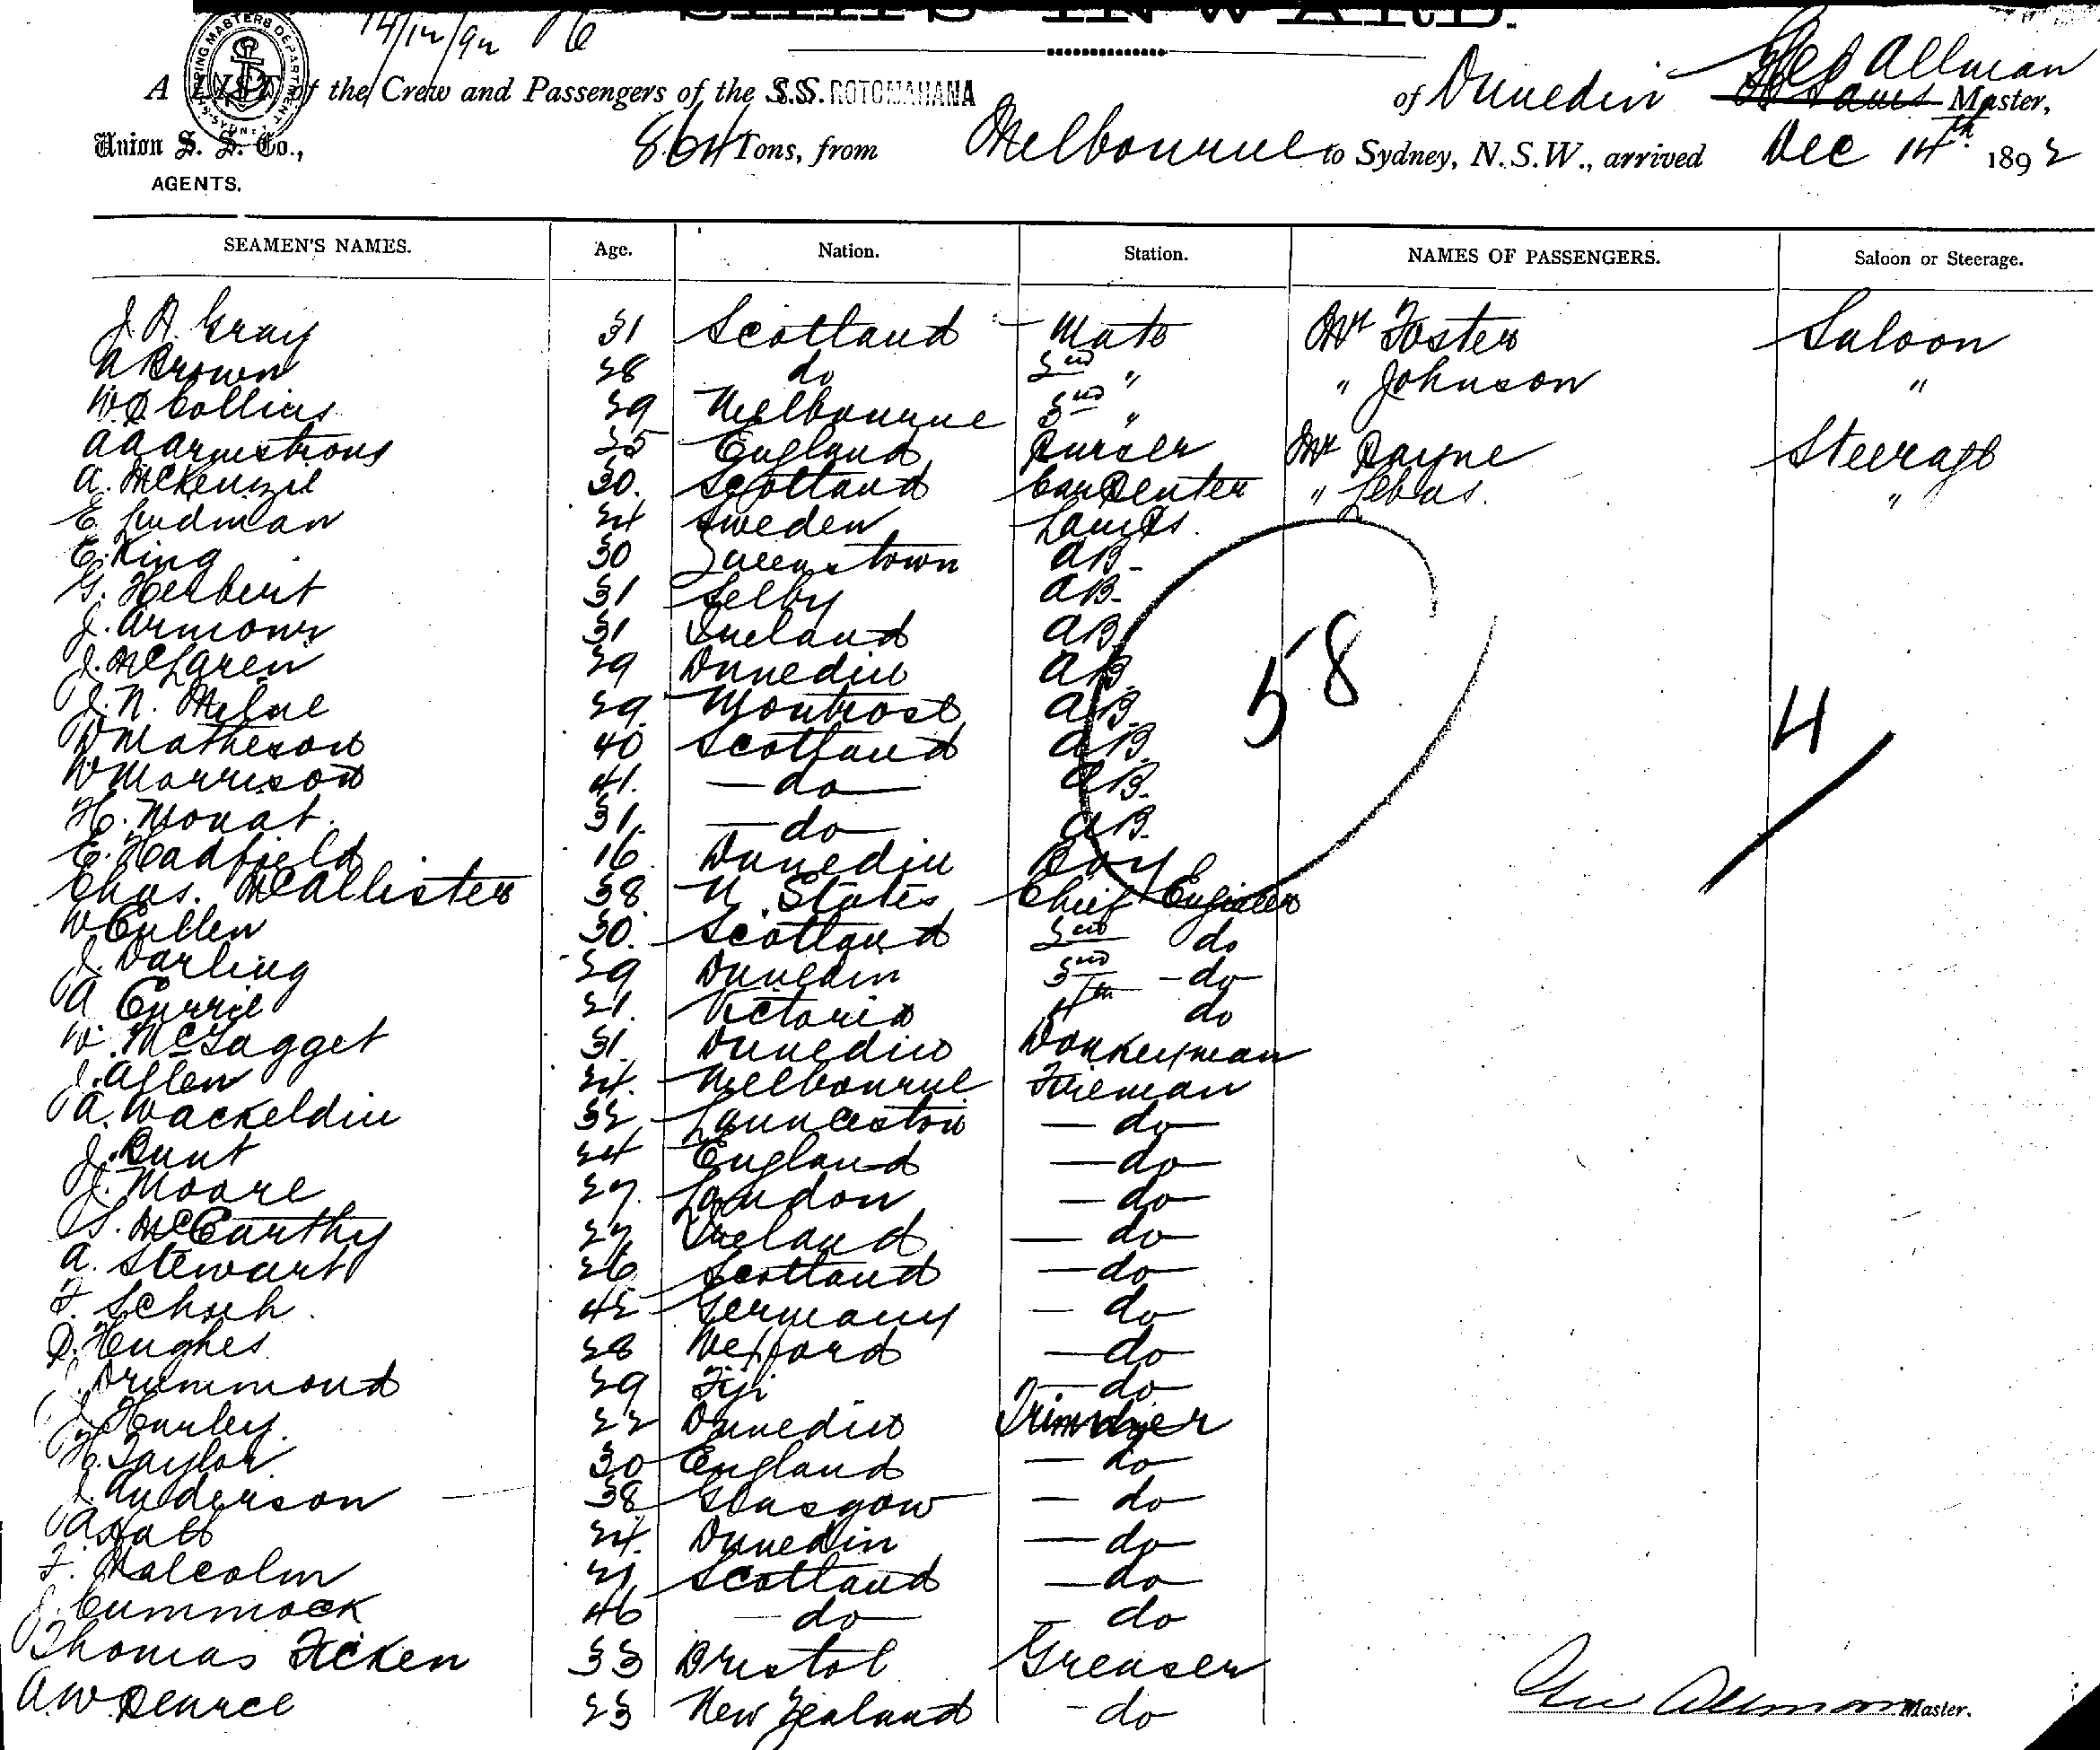 SHIPS INWARD.
14/12/92 76
SHIPPING MASTERS DEPARTMENT SYDNEY
Geo Allman
A LIST of the Crew and Passengers of the S.S. ROTOMAHANA of Dunedin Master,
Union S. S. Co., 864 Tons, from Melbourne to Sydney, N.S.W., arrived Dec 14th 1892
AGENTS.
SEAMEN'S NAMES. Age. Nation. Station. NAMES OF PASSENGERS. Saloon or Steerage.
J. A. Gray 31 Scotland Mate Mr Foster Saloon
A Brown 28 do 2nd " " Johnson "
W. D Collins 29 Melbourne 3rd "
A A Armstrong 25 England Purser Mr Payne Steerage
A. McKenzie 30. Scotland Carpenter " Lebas. "
E. Lindman 24 Sweden Lamps.
E. King 30 Queenstown AB.
G. Herbert 31 Selby AB.
J. Armour 31 Ireland AB.
J. McLaren 29 Dunedin AB. 58
J. N. Milne 29. Montrose AB. 4
D Matheson 40 Scotland AB.
W Morrison 41. do AB.
H. Mouat. 31. do AB.
E. Hadfield 16 Dunedin Boy
Chas. McCallister 38 U. States Chief Engineer
W Cullen 30. Scotland 2nd do
J. Darling 29 Dunedin 3rd do
A Currie 21. Victoria 4th do
W. McTagget 31. Dunedin Donkeyman
J. Allen 24. Melbourne Fireman
A. Wackeldin 32 Launceston do
J. Bunt 24 England do
J. Moore 27. London do
S. McCarthy 27 Ireland do
A. Stewart 26 Scotland do
F. Schuh. 42 Germany do
P. Hughes 28 Wexford do
J. Drummond 29 Fiji do
J. Hurley. 22 Dunedin Trimmer
H. Taylor 30 England do
J. Anderson 38 Glasgow do
A. Hall 24. Dunedin do
F. Malcolm 21 Scotland do
J. Cummock 46 do do
Thomas Ficken 33 Bristol Greaser
A. W. Pearce 23 New Zealand do
Geo Allman Master.